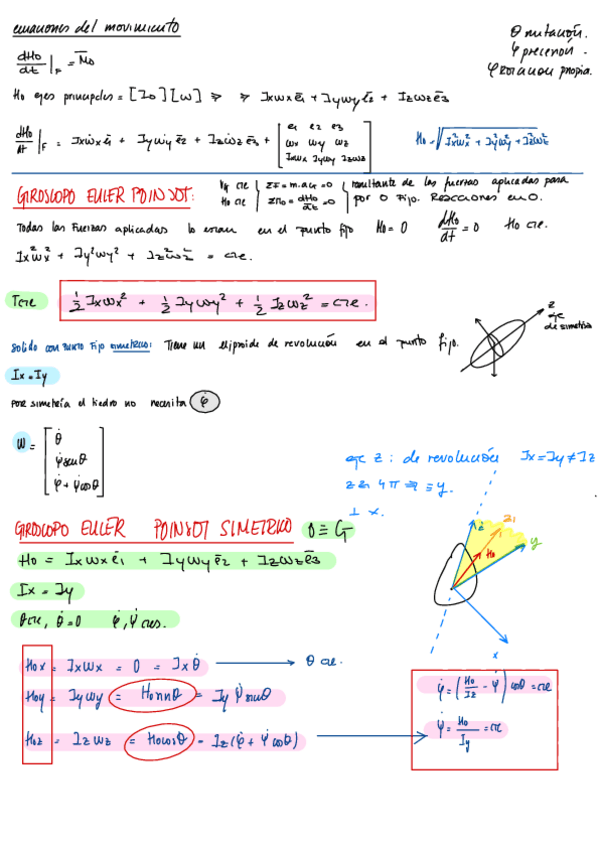 ecuaciones del movimiento
θ nutación.
ψ precesión.
φ rotación propia.
dHo/dt |F = M̄o
Ho ejes principales = [Io] [w] ⇒ Ixwx ē1 + Iywy ē2 + Izwz ē3
dHo/dt |F = Ixẇx ē1 + Iyẇy ē2 + Izẇz ē3 +
e1 e2 e3
wx wy wz
Ixwx Iywy Izwz
Ho = √(Ix²wx² + Iy²wy² + Iz²wz²)
GIROSCOPO EULER POINSOT:
ΣF = m·aG = 0
Ho cte
ΣMo = dHo/dt = 0
resultante de las fuerzas aplicadas pasa
por O fijo. Reacciones en O.
Todas las fuerzas aplicadas lo están en el punto fijo Mo = 0 dHo/dt = 0 Ho cte.
Ix²wx² + Iy²wy² + Iz²wz² = cte.
Tcte
½ Ixwx² + ½ Iywy² + ½ Izwz² = cte.
z
eje
de simetría
Solido con punto fijo simétrico: Tiene un elipsoide de revolución en el punto fijo.
Ix = Iy
por simetría el triedro no necesita φ
w =
θ̇
ψ̇ senθ
φ̇ + ψ̇ cosθ
eje z: de revolución Ix = Iy ≠ Iz
⊥ x.
GIROSCOPO EULER POINSOT SIMETRICO O ≡ G
Ho = Ixwx ē1 + Iywy ē2 + Izwz ē3
Ix = Iy
θcte, θ̇ = 0 φ̇, ψ̇ ctes.
z
z1
y
Ho
x
Hox = Ixwx = 0 = Ix θ̇ → θ cte.
Hoy = Iywy = Ho senθ = Iy ψ̇ senθ
Hoz = Izwz = Ho cosθ = Iz(φ̇ + ψ̇ cosθ)
φ̇ = (Ho/Iz - ψ̇) cosθ = cte
ψ̇ = Ho/Iy = cte